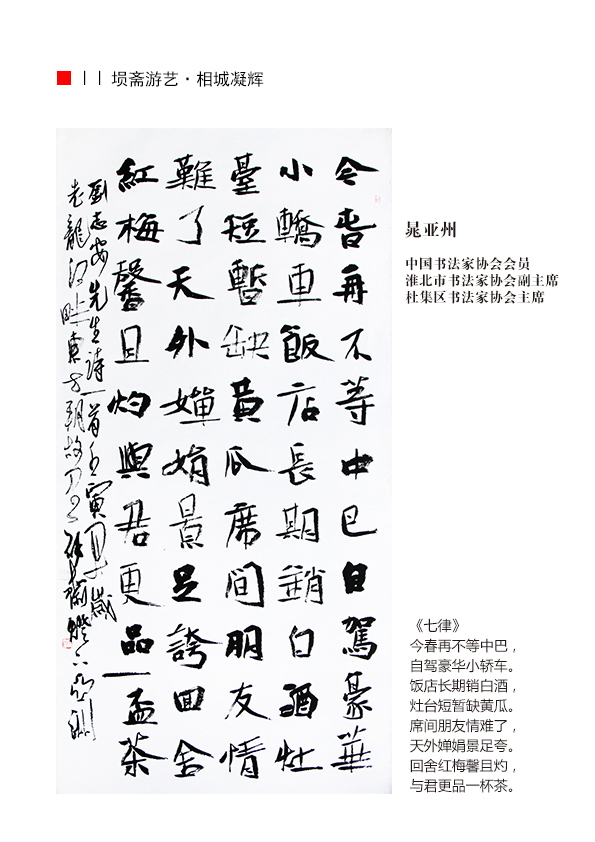 | | 埙斋游艺·相城凝辉
今春再不等中巴自駕豪華
小轎車飯店長期銷白酒灶
臺短暫缺黃瓜席間朋友情
難了天外嬋娟景足誇回舍
紅梅馨且灼與君更品一盃茶
劉志安先生詩一首壬寅
老龍河畔東方朝
晁亚州
中国书法家协会会员
淮北市书法家协会副主席
杜集区书法家协会主席
《七律》
今春再不等中巴，
自驾豪华小轿车。
饭店长期销白酒，
灶台短暂缺黄瓜。
席间朋友情难了，
天外婵娟景足夸。
回舍红梅馨且灼，
与君更品一杯茶。